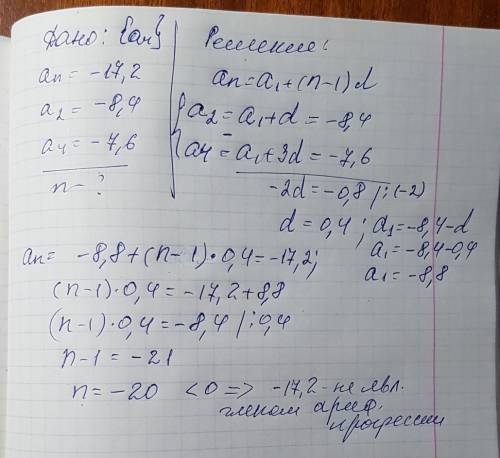 Дано: {an}
an = -17,2
a2 = -8,4
a4 = -7,6
n - ?
Решение:
an = a1 + (n-1)d
{a2 = a1 + d = -8,4
-
{a4 = a1 + 3d = -7,6
-2d = -0,8 /:(-2)
d = 0,4 ; a1 = -8,4 - d
a1 = -8,4 - 0,4
a1 = -8,8
an = -8,8 + (n-1)·0,4 = -17,2;
(n-1)·0,4 = -17,2 + 8,8
(n-1)·0,4 = -8,4 /:0,4
n-1 = -21
n = -20 <0 => -17,2 - не явл.
членом ариф.
прогрессии